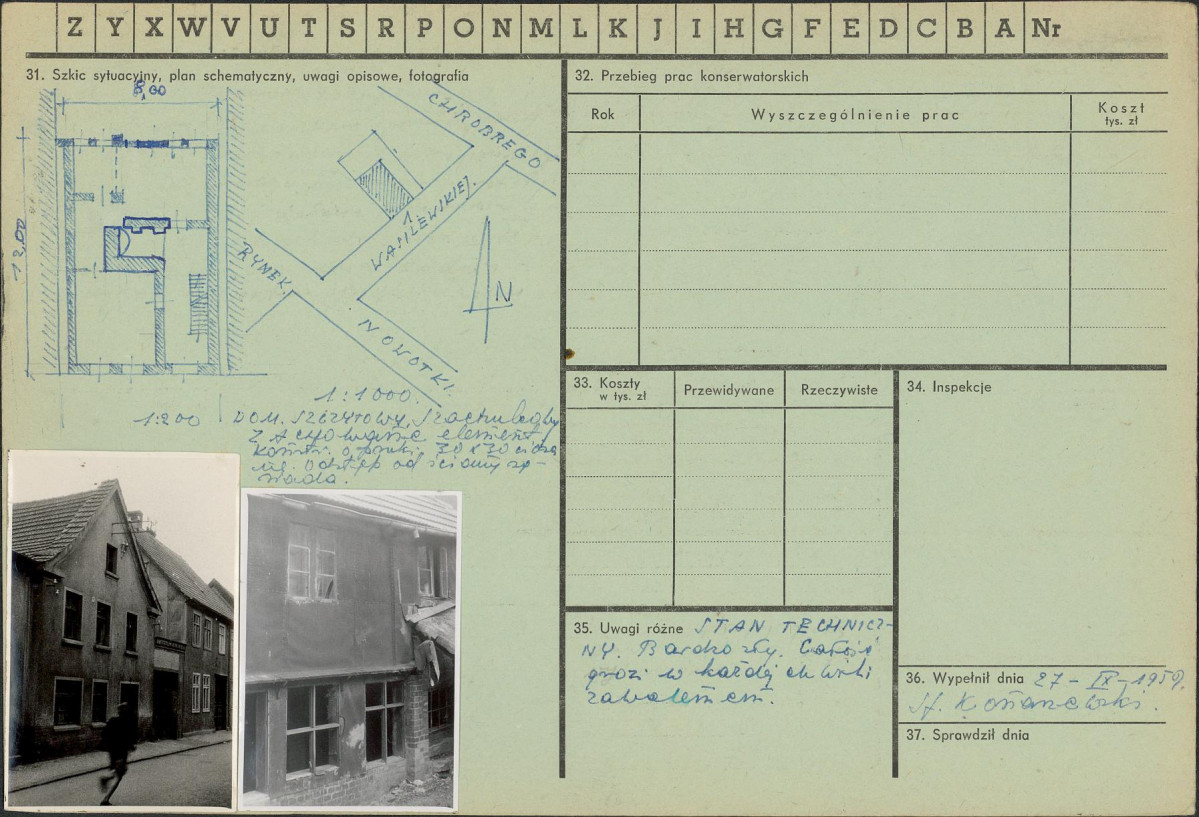 Z Y X W V U T S R P O N M L K J I H G F E D C B A Nr
31. Szkic sytuacyjny, plan schematyczny, uwagi opisowe, fotografia
8,00
12,00
CHROBREGO
1.
WASILEWSKIEJ.
RYNEK.
NOWOTKI.
N
1:1000.
1:200
DOM. SZCZYTOWY, Szachulcowy
element
30 x 30
odstęp od ściany są-
siada.
32. Przebieg prac konserwatorskich
Rok
Wyszczególnienie prac
Koszt
tys. zł
33. Koszty
w tys. zł
Przewidywane
Rzeczywiste
34. Inspekcje
35. Uwagi różne STAN TECHNICZ-
NY. Bardzo zły. Całość
grozi w każdej chwili
zawaleniem.
36. Wypełnił dnia 27-IX-1959.
37. Sprawdził dnia